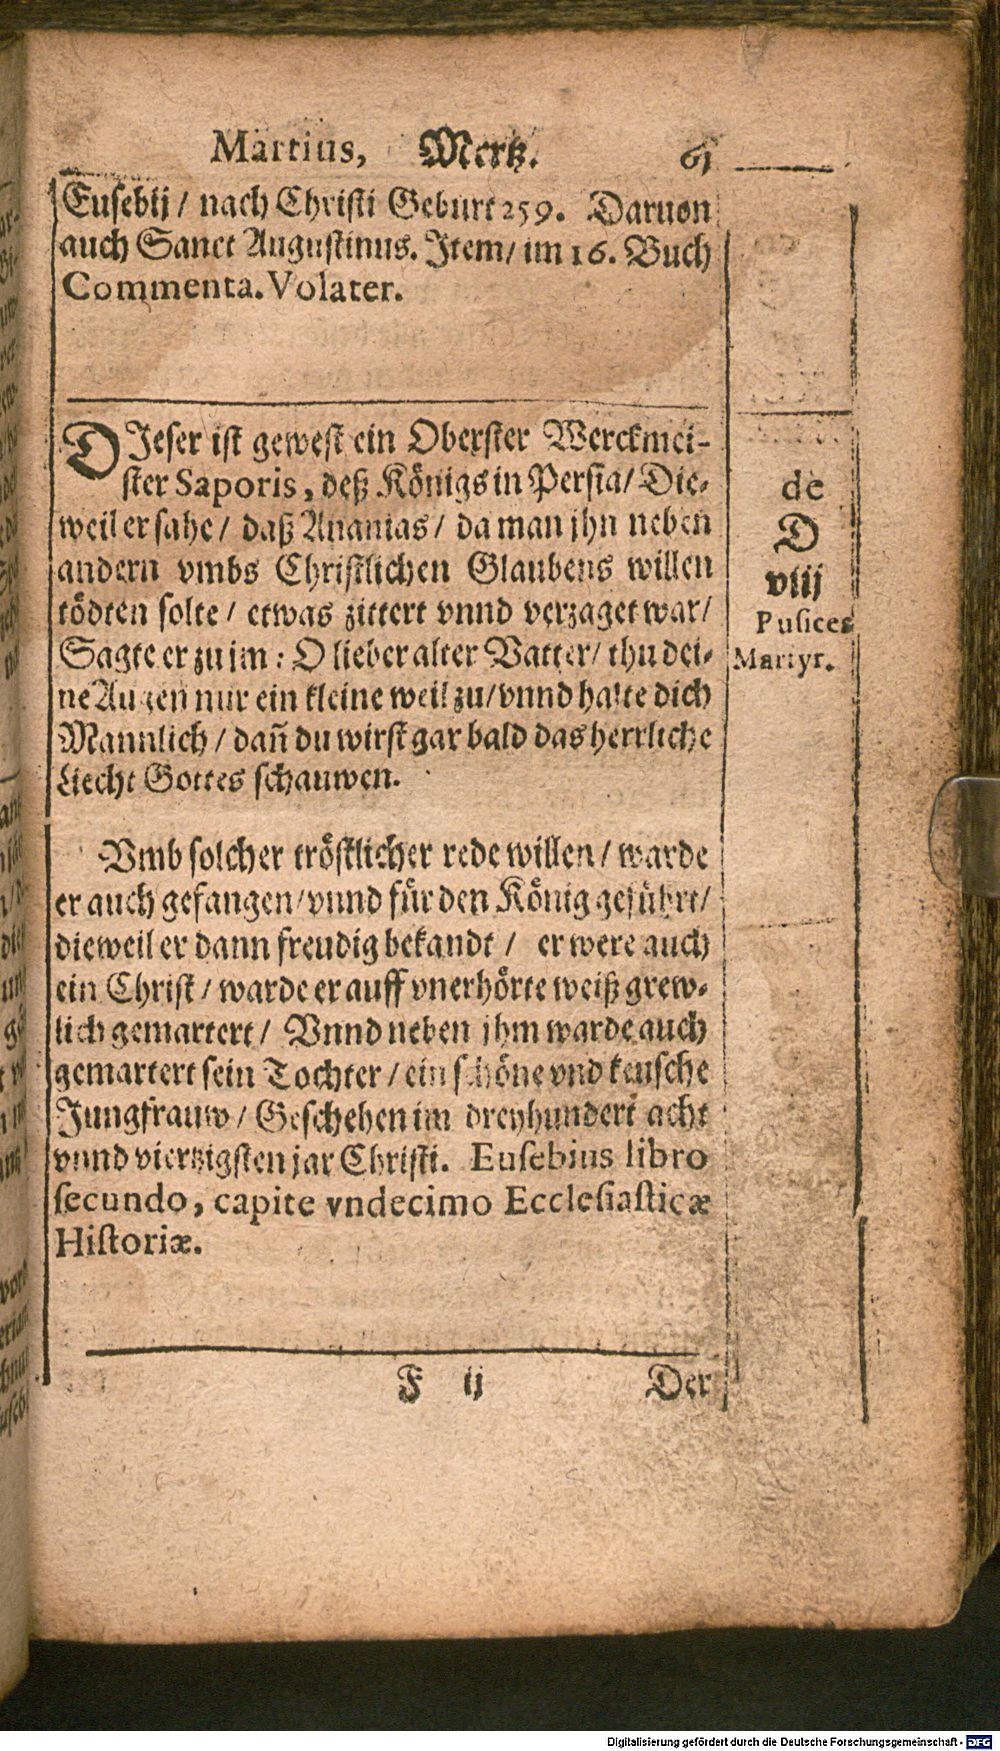 Martius, Mertz. 61
Eusebij / nach Christi Geburt 259. Daruon
auch Sanct Augustinus. Item / im 16. Buch
Commenta. Volater.
DIeser ist gewest ein Oberster Werckmei-
ster Saporis, deß Königs in Persia / Die-
weil er sahe / daß Ananias / da man jhn neben
andern vmbs Christlichen Glaubens willen
tödten solte / etwas zittert vnnd verzaget war /
Sagte er zu jm : O lieber alter Vatter / thu dei-
ne Augen nur ein kleine weil zu / vnnd halte dich
Mannlich / dañ du wirst gar bald das herrliche
Liecht Gottes schauwen.
de
D
viij
Pusices
Martyr.
Vmb solcher tröstlicher rede willen / warde
er auch gefangen / vnnd für den König geführt /
dieweil er dann freudig bekandt / er were auch
ein Christ / warde er auff vnerhörte weiß grew-
lich gemartert / Vnnd neben jhm warde auch
gemartert sein Tochter / ein schöne vnd keusche
Jungfrauw / Geschehen im dreyhundert acht
vnnd viertzigsten jar Christi. Eusebius libro
secundo, capite vndecimo Ecclesiasticæ
Historiæ.
F ij Der
Digitalisierung gefördert durch die Deutsche Forschungsgemeinschaft - DFG